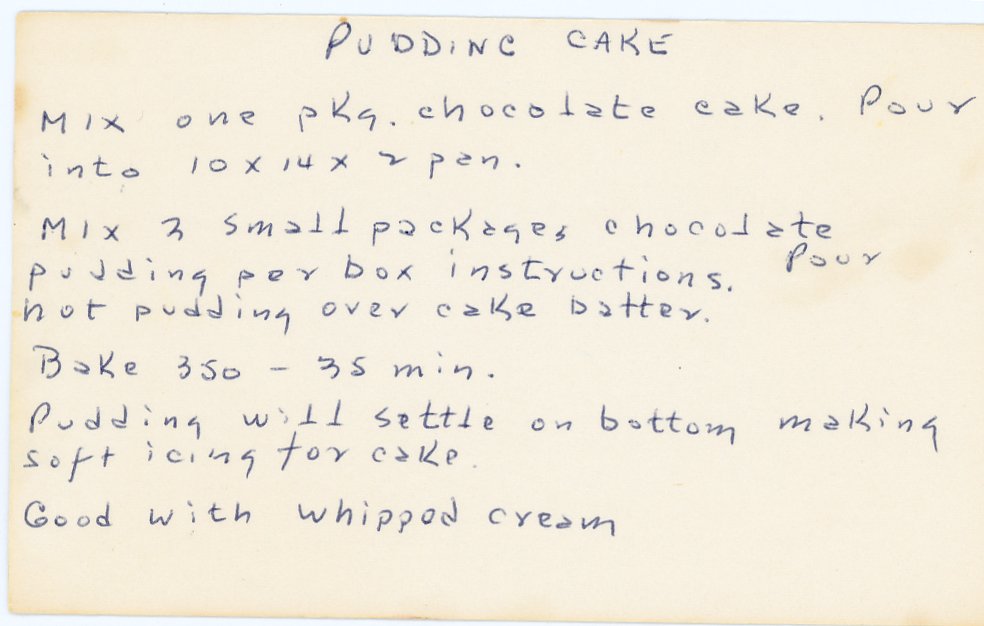 PUDDING CAKE
Mix one pkg. chocolate cake. Pour
into 10 x 14 x 2 pan.
Mix 3 small packages chocolate
pudding per box instructions. Pour
hot pudding over cake batter.
Bake 350 - 35 min.
Pudding will settle on bottom making
soft icing for cake.
Good with whipped cream